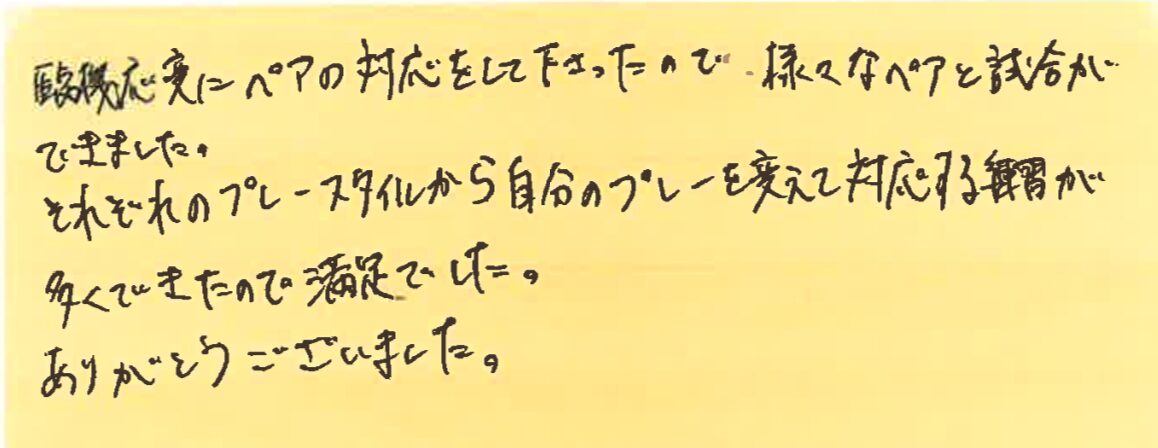 臨機応変にペアの対応をして下さったので、様々なペアと試合が
できました。
それぞれのプレースタイルから自分のプレーを変えて対応する練習が
多くできたので満足でした。
ありがとうございました。